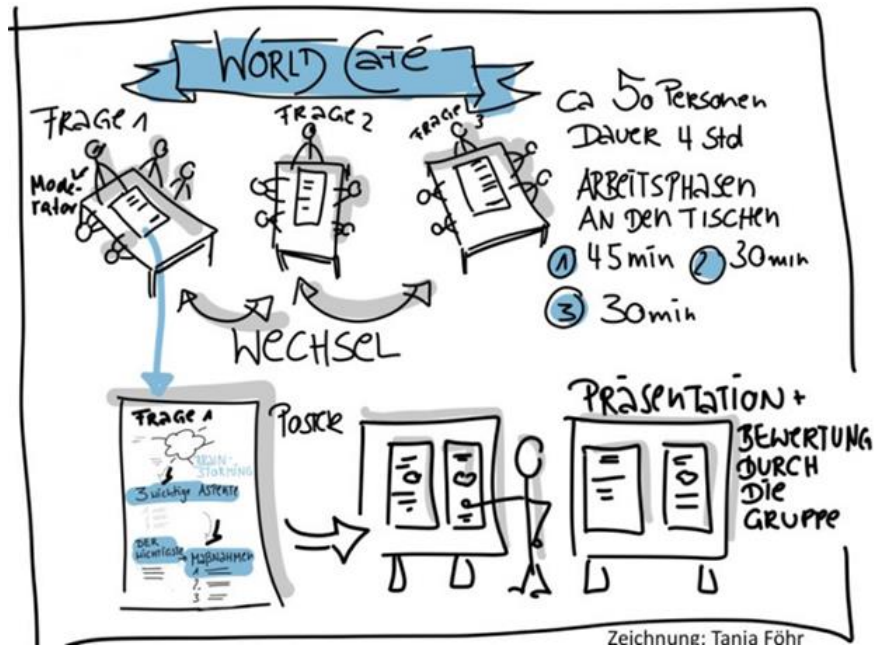 WORLD CAFÉ
FRAGE 1
FRAGE 2
FRAGE 3
Mode-
rator
ca 50 Personen
Dauer 4 Std
ARBEITSPHASEN
AN DEN TISCHEN
1 45min 2 30min
3 30min
WECHSEL
FRAGE 1
BRAIN-
STORMING
3 wichtige ASPEKTE
DER
wichtigste
MAßNAHMEN
1
2.
3
Poster
PRÄSENTATION +
BEWERTUNG
DURCH
DIE
GRUPPE
Zeichnung: Tanja Föhr